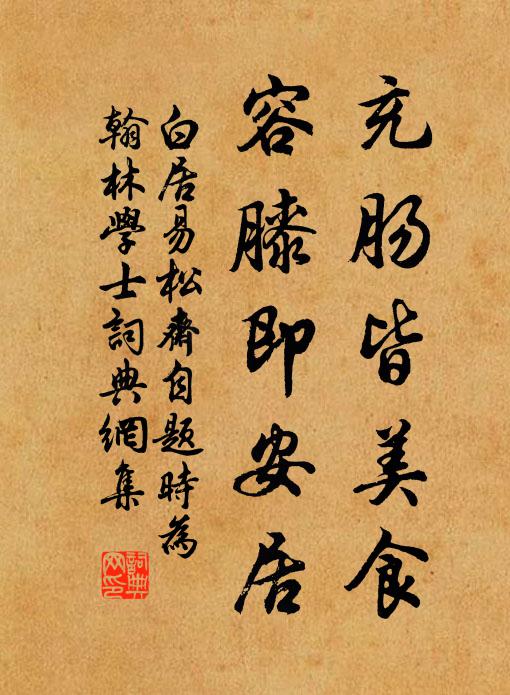 充肠皆美食
容膝即安居
白居易松齋自題時為
翰林學士詞典網集
詞典网印